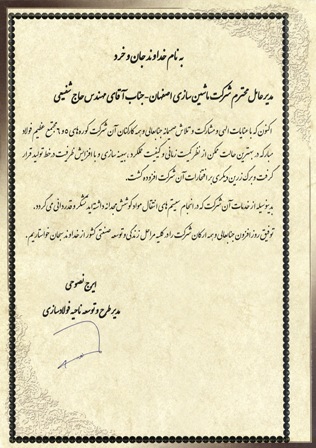 به نام خداوند جان و خرد
مدیرعامل محترم شرکت ماشین سازی اصفهان - جناب آقای مهندس حاج شفیعی
اکنون که با عنایات الهی و مشارکت و تلاش صمیمانه جنابعالی و همه کارکنان آن شرکت کوره های ۵ و ۶ مجتمع عظیم فولاد
مبارکه در بهترین حالت ممکن از نظر کیت زمانی و کیفیت عملکرد، بهینه سازی و با افزایش ظرفیت در خط تولید قرار
گرفت و برگ زرین دیگری بر افتخارات آن شرکت افزوده گشت.
بدینوسیله از خدمات آن شرکت که در انجام سیستم های انتقال مواد کوشش مجدانه داشته اید متشکر و قدردانی می گردد.
توفیق روز افزون جنابعالی و همه ارکان شرکت را در کلیه مراحل زندگی و توسعه صنعتی کشور از خداوند سبحان خواستاریم.
ایرج نصوحی
مدیر طرح و توسعه ناحیه فولادسازی